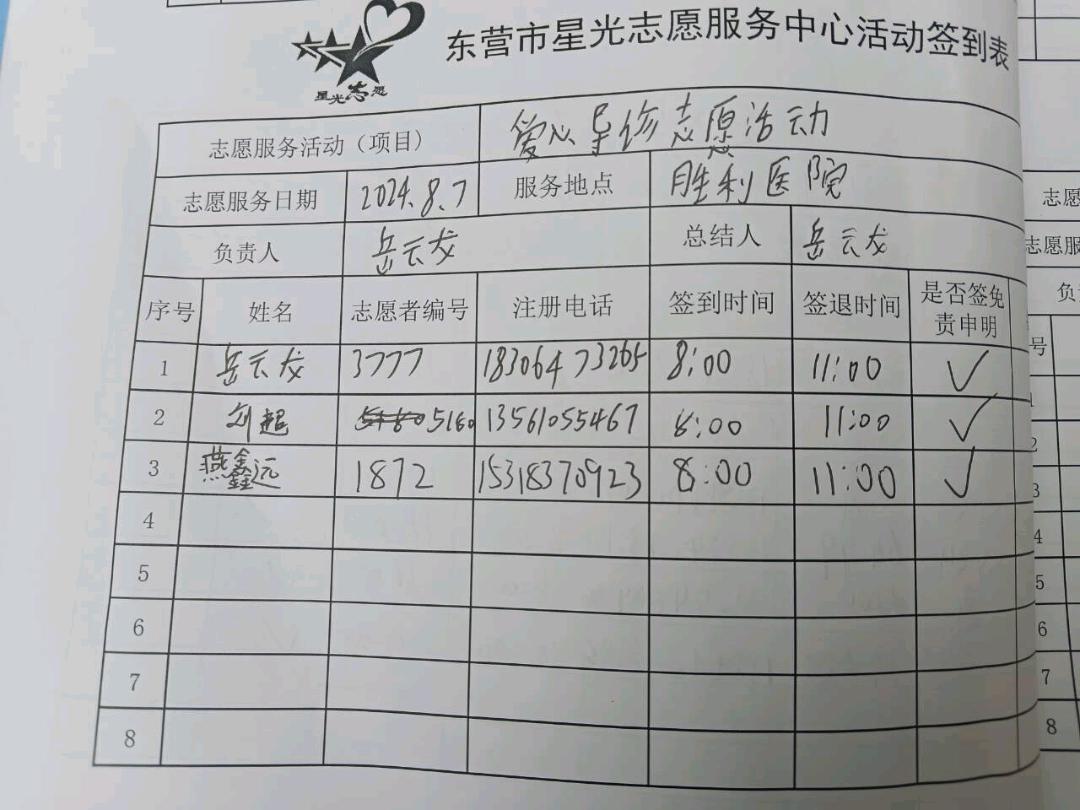 东营市星光志愿服务中心活动签到表
星光志愿
志愿服务活动（项目） 爱心导诊志愿活动
志愿服务日期 2024.8.7 服务地点 胜利医院
负责人 岳云龙 总结人 岳云龙
序号 姓名 志愿者编号 注册电话 签到时间 签退时间 是否签免责申明
1 岳云龙 3777 18306473265 8:00 11:00 ✓
2 刘超 5160 13561055467 8:00 11:00 ✓
3 燕鑫远 1872 15318370923 8:00 11:00 ✓
4
5
6
7
8
志愿
志愿服
负
号
1
2
3
4
5
6
7
8